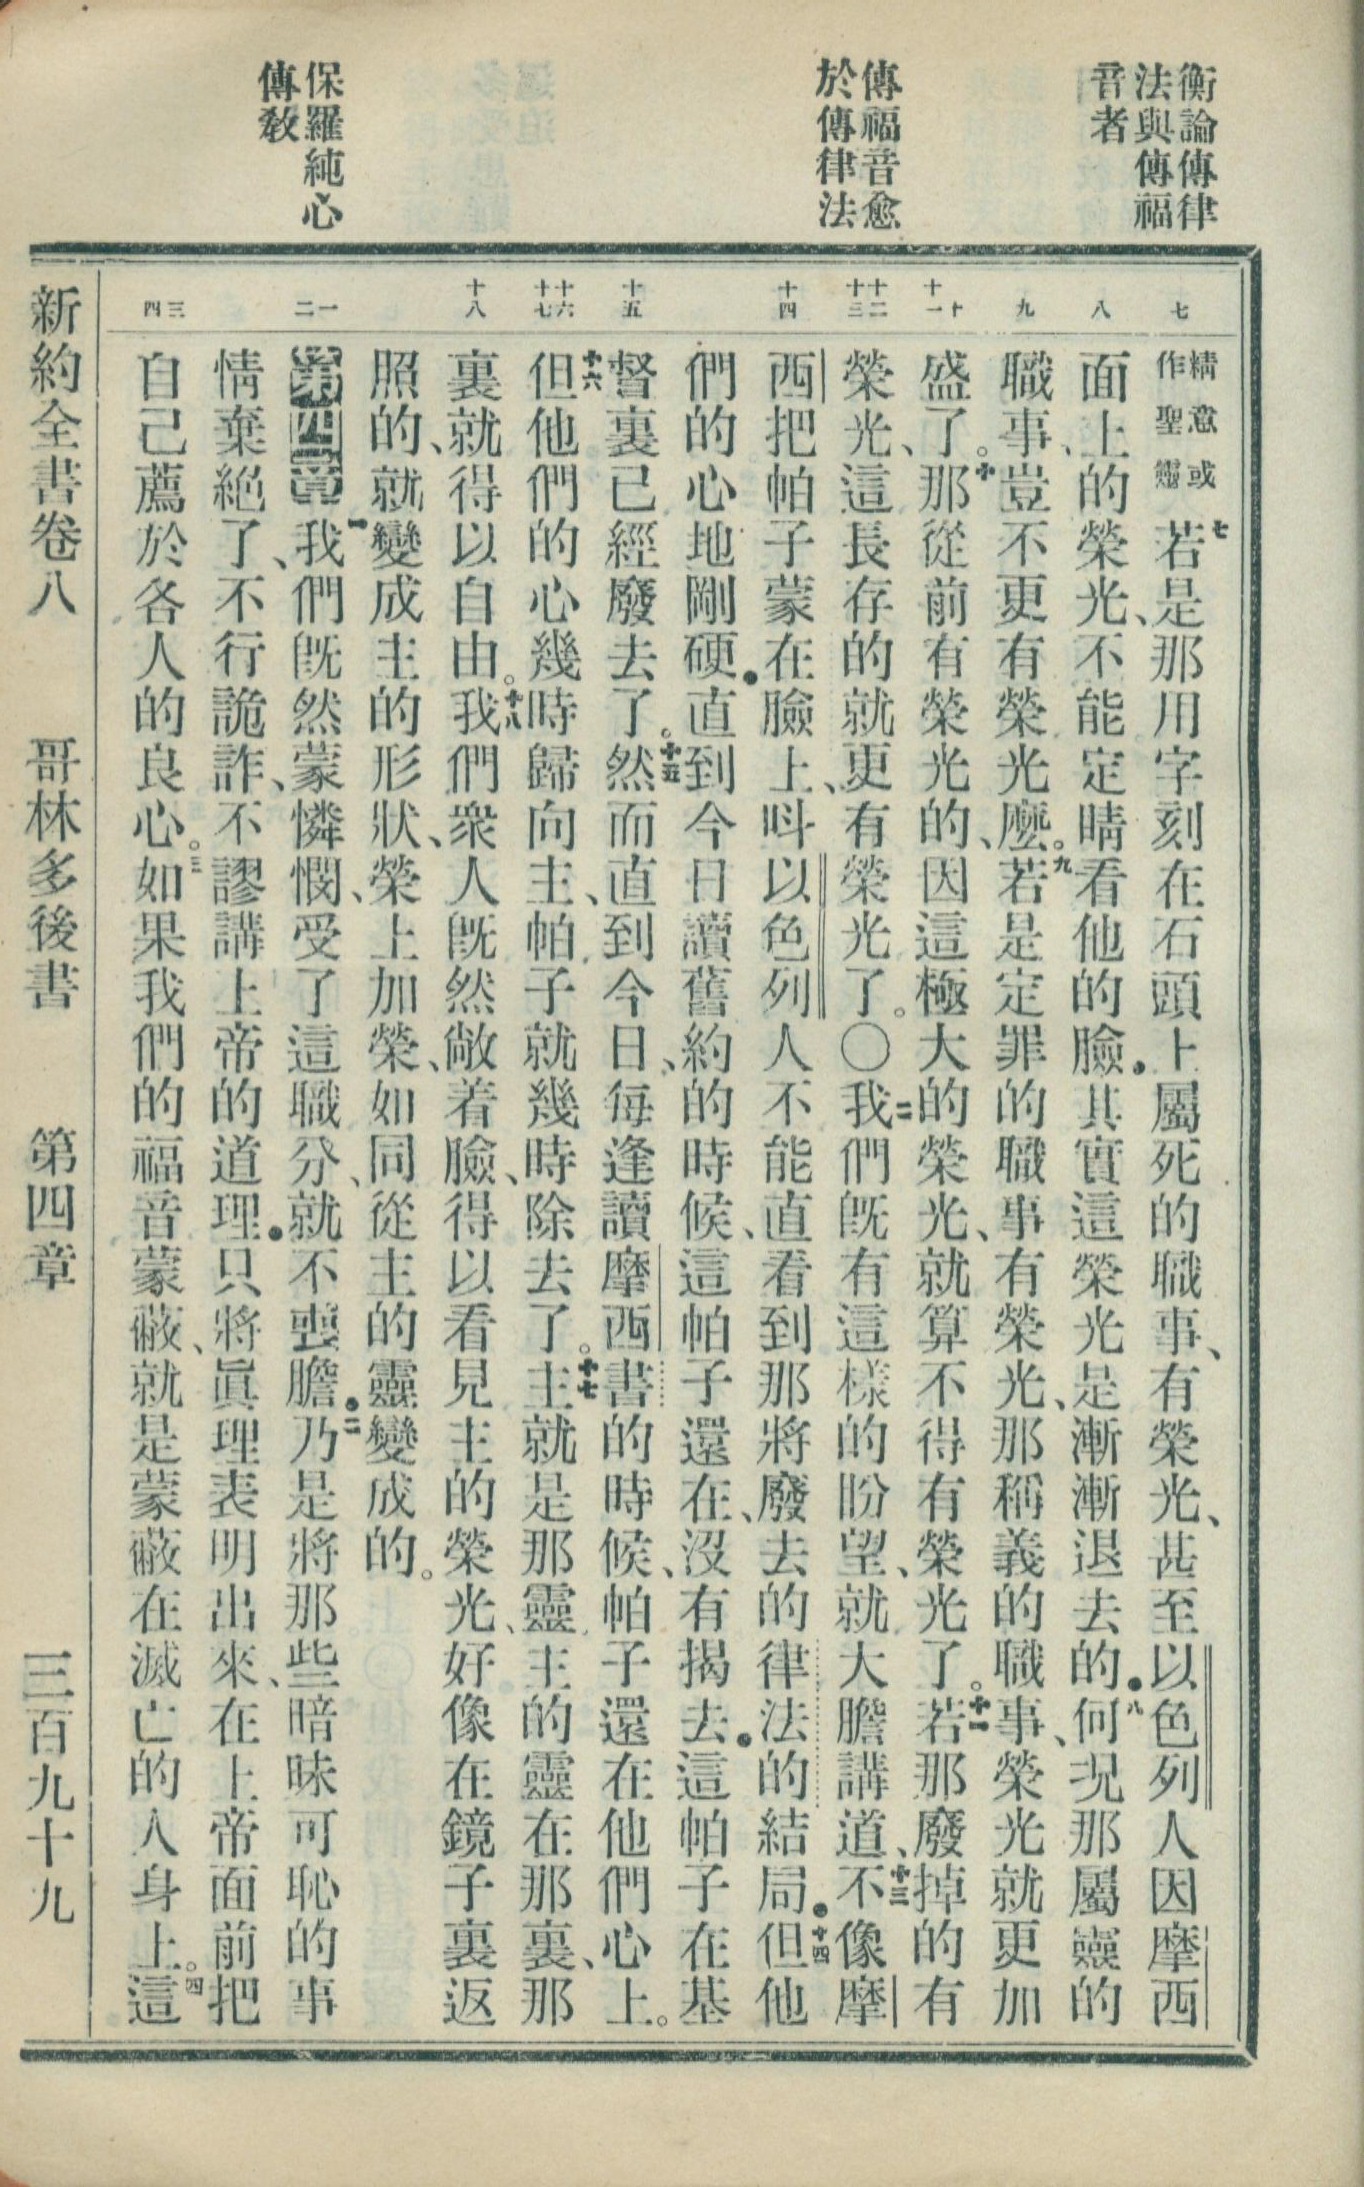 衡論傳律
法與傳福
音者
傳福音愈
於傳律法
保羅純心
傳敎
七
八
九
十
十一
十二
十三
十四
十五
十六
十七
十八
一
二
三
四
精意或
作聖靈
七若是那用字刻在石頭上屬死的職事、有榮光、甚至以色列人因摩西
面上的榮光、不能定睛看他的臉．其實這榮光是漸漸退去的．八何况那屬靈的
職事、豈不更有榮光麽。九若是定罪的職事有榮光、那稱義的職事、榮光就更加
盛了。十那從前有榮光的、因這極大的榮光、就算不得有榮光了。十一若那廢掉的有
榮光、這長存的就更有榮光了。〇十二我們旣有這樣的盼望、就大膽講道、十三不像摩
西把帕子蒙在臉上、呌以色列人不能直看到那將廢去的律法的結局．十四但他
們的心地剛硬．直到今日讀舊約的時候、這帕子還在、沒有揭去．這帕子在基
督裏已經廢去了。十五然而直到今日、每逢讀摩西書的時候、帕子還在他們心上。
十六但他們的心幾時歸向主、帕子就幾時除去了。十七主就是那靈、主的靈在那裏、那
裏就得以自由。十八我們衆人旣然敞着臉、得以看見主的榮光、好像在鏡子裏返
照的、就變成主的形狀、榮上加榮、如同從主的靈變成的。
第四章一我們旣然蒙憐憫、受了這職分、就不喪膽．二乃是將那些暗昧可恥的事
情棄絕了、不行詭詐、不謬講上帝的道理．只將眞理表明出來、在上帝面前把
自己薦於各人的良心。三如果我們的福音蒙蔽、就是蒙蔽在滅亡的人身上。四這
新約全書卷八　哥林多後書　第四章　三百九十九